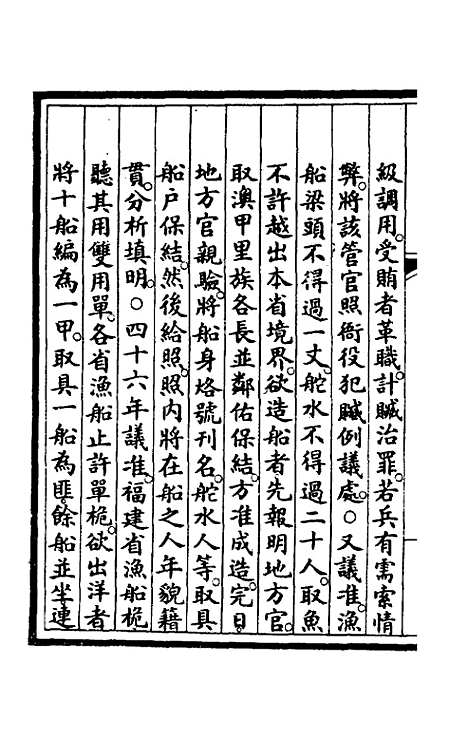 級調用。受賄者革職。計贓治罪。若兵有需索情
弊。將該管官照衙役犯贓例議處。○又議准。漁
船梁頭不得過一丈。舵水不得過二十人。取魚
不許越出本省境界。欲造船者先報明地方官。
取澳甲里族各長並鄰佑保結。方准成造。完日。
地方官親驗。將船身烙號刊名。舵水人等。取具
船户保結。然後給照。照內將在船之人年貌籍
貫。分析填明。○四十六年議准。福建省漁船桅
聽其用雙用單。各省漁船止許單桅。欲出洋者
將十船編為一甲。取具一船為匪。餘船並坐連